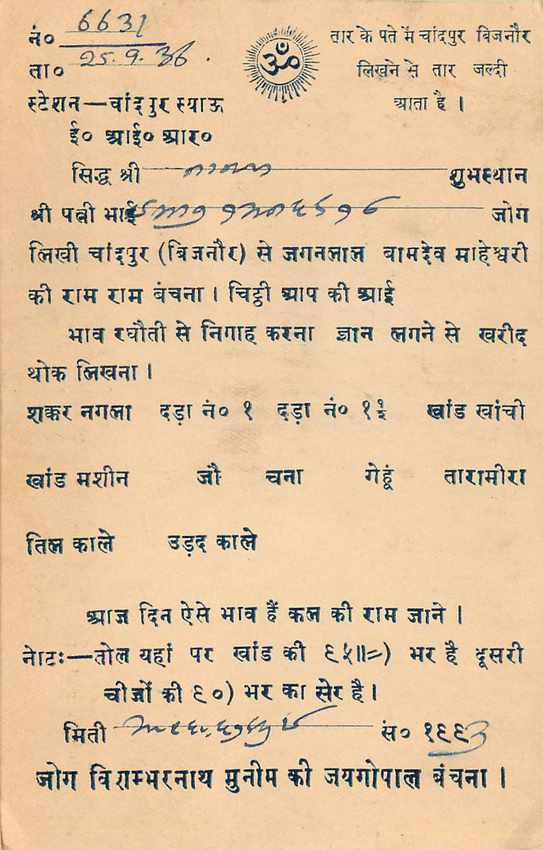 नं० 6631
ता० 25.9.36.
ॐ
तार के पते में चांदपुर बिजनौर
लिखने से तार जल्दी
आता है ।
स्टेशन—चांदपुर स्याऊ
ई० आई० आर०
सिद्ध श्री शुभस्थान
श्री पत्री भाई जोग
लिखी चांदपुर (बिजनौर) से जगनलाल बामदेव माहेश्वरी
की राम राम बंचना । चिट्ठी आप की आई
भाव रघौती से निगाह करना ज्ञान लगने से खरीद
थोक लिखना ।
शकर नगला दड़ा नं० १ दड़ा नं० १½ खांड खांची
खांड मशीन जौ चना गेहूं तारामीरा
तिल काले उड़द काले
आज दिन ऐसे भाव हैं कल की राम जाने ।
नोटः—तोल यहां पर खांड की ९५॥=) भर है दूसरी
चीजों की ९०) भर का सेर है ।
मिती सं० १९९3
जोग विशम्भरनाथ मुनीम की जयगोपाल बंचना ।